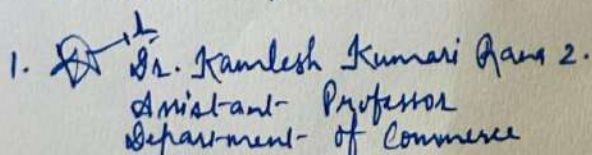 1. Dr. Kamlesh Kumari Rana 2.
Assistant Professor
Department of Commerce